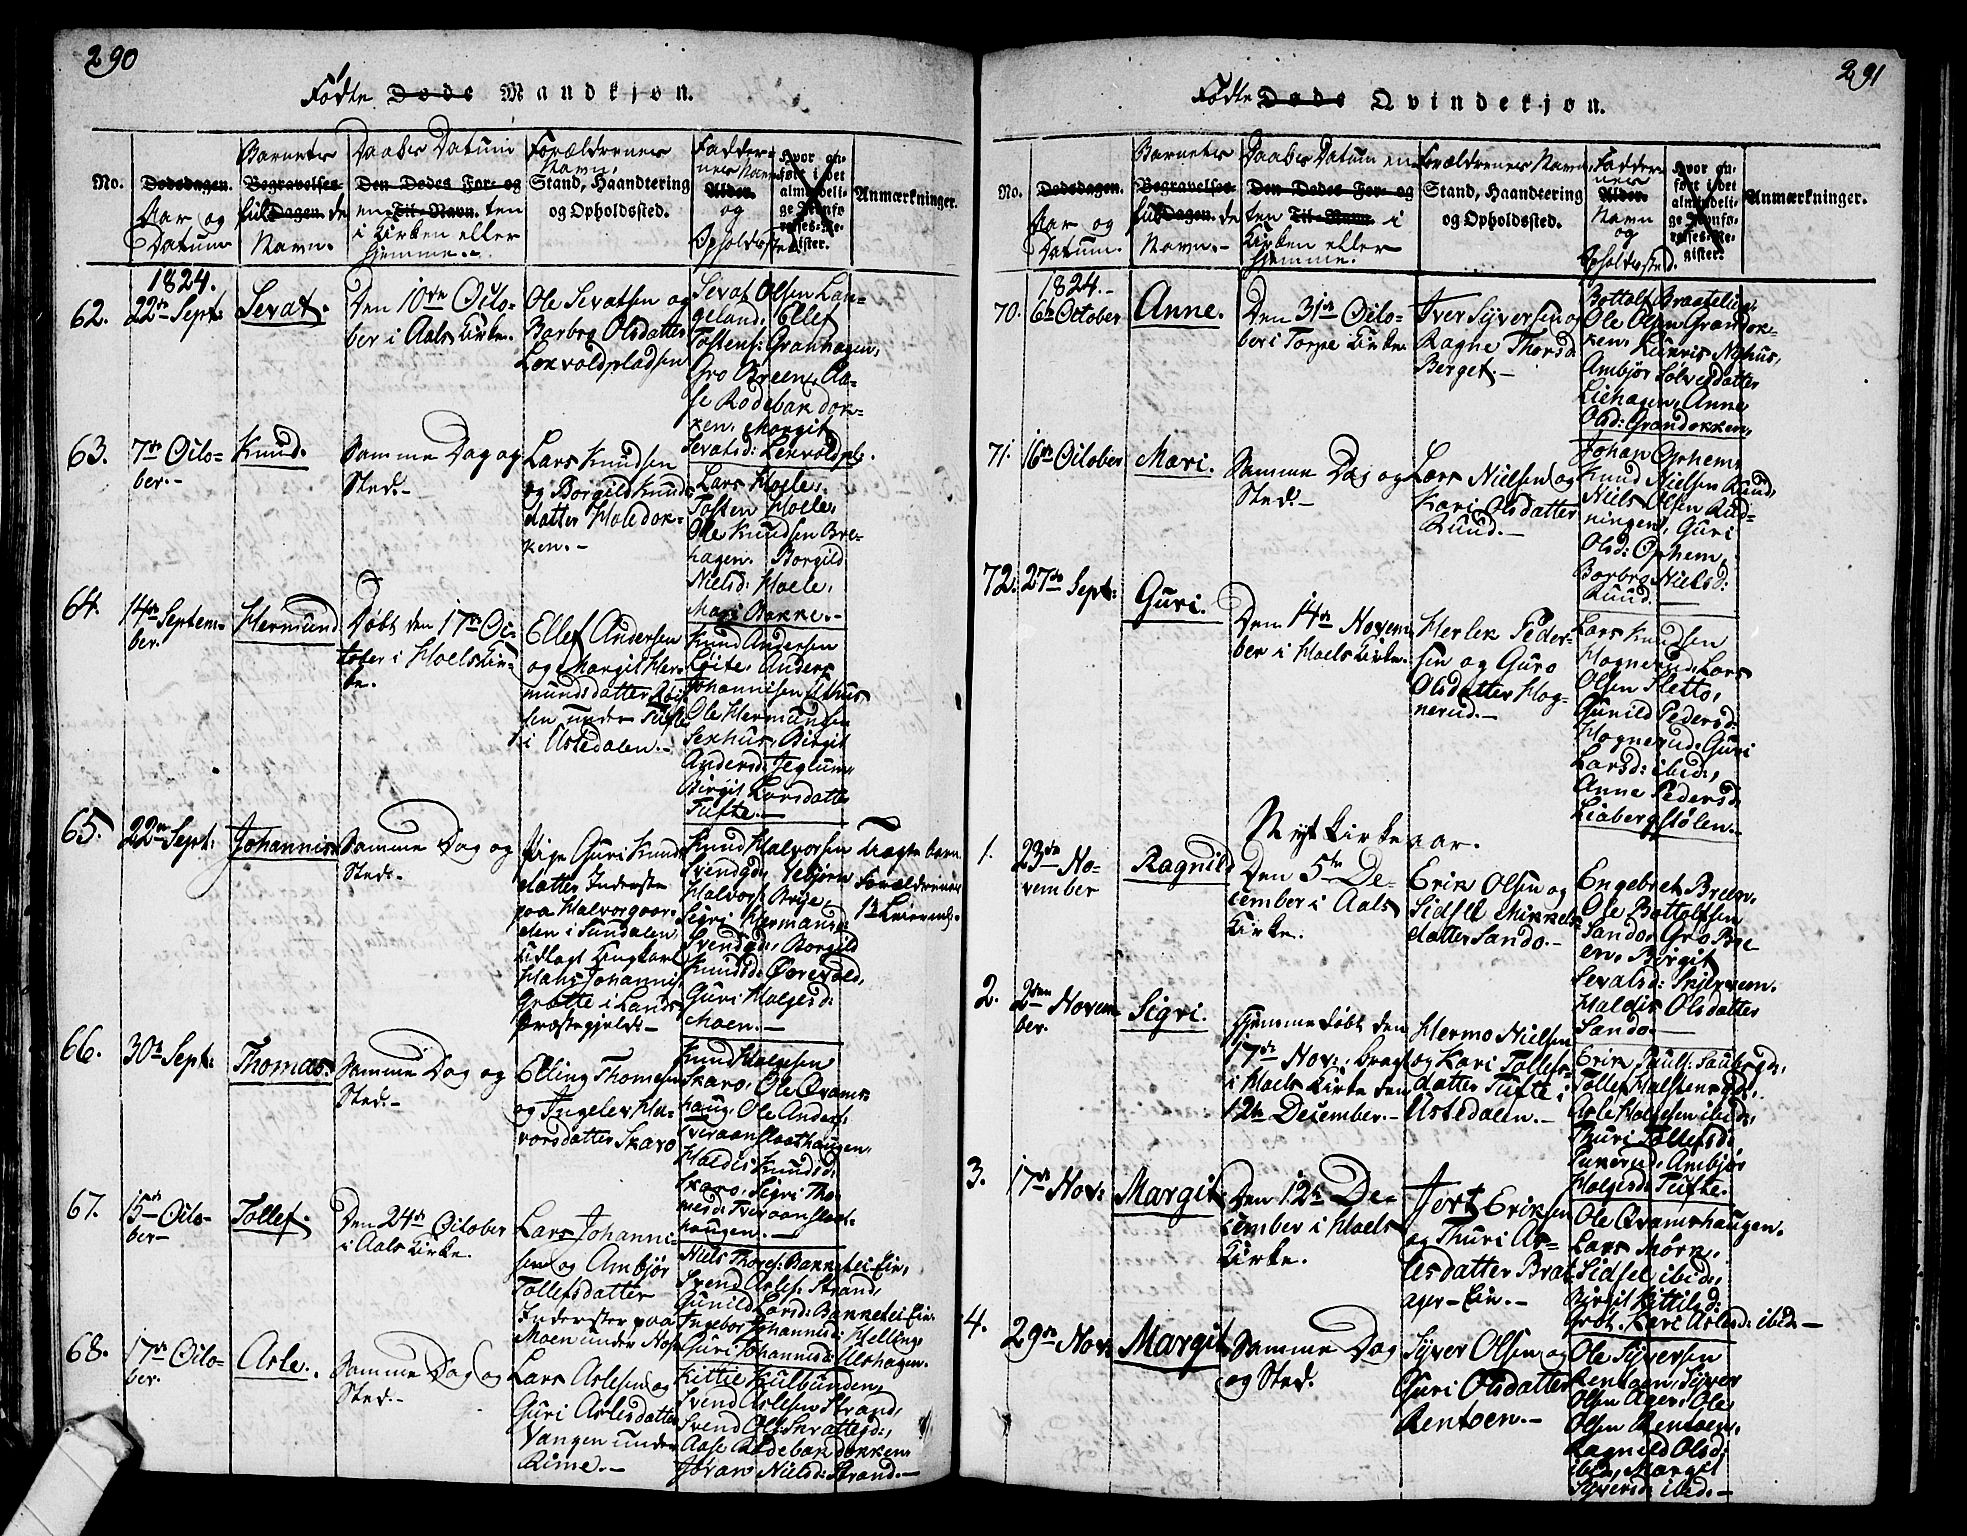 290
Fødte Døde Mandkjøn.
No.
Dødsdagen.
Aar og
Datum
Barnets
Begravelses-
fulde
Dagen.
Navn.
Daabs Datum
Den Dødes For- og
enten
Til-Navn.
i Kirken eller
hjemme.
Forældrenes
Navn,
Stand, Haandtering
og Opholdssted.
Fadder-
nes Navn
Alder.
og
Opholdssted
Hvor an-
ført i det
almindeli-
ge Jevnfø-
relses-Re-
gister.
Anmærkninger.
1824.
62.
22de Sept:
Sevat.
Den 10de Octo-
ber i Aals Kirke.
Ole Sevatsen og
Barbro Olsdatter
Løkvoldpladsen
Sevat Olsen Lan-
geland. Ellef
Tostens: Granhagen,
Gro Breen, Aa-
se Rodebakdok-
ken. Margit
Sevatsd: Løkvoldpl.
63.
7de Octo-
ber.-
Knud.
Samme Dag og
Sted.-
Lars Knudsen
og Borgild Knuds
datter Holedok-
ken.-
Lars Hoele,
Tosten Hoele,
Ole Knudsen Bre-
hagen. Borgild
Nielsd: Hoele,
Mari Bakke.-
64.
14de Septem-
ber.
Hermund
Døbt den 17de Oc-
tober i Hoels Kir-
ke.
Ellef Andersen
og Margit Her-
mundsdatter
sen under Tufte
i Ustedalen.-
Knud Andersen
Anders
Johannisen Uthus
Ole Hermundsen
Sexhus, Birgit
Andersd: Jeglum,
Birgit Larsdatter
Tufte.-
65.
22de Sept:
Johannis
Samme Dag og
Sted.
Pige Guri Knuds
datter Inderste
paa Halvorgaar-
den i Sundalen
Udlagt Ungkarl
Hans Johannis:
Grøtte i Lands
Præstegjeld.-
Knud Halvorsen
Svendgd: Vebjørn
Halvors: Brye,
Sigri Hermansd:
Svendgd: Borgild
Knudsd: Ørevold,
Guri Holgesd:
Moen.-
Uægte barn
Forældrenes
1ste Leiermaal.
66.
30te Sept:
Thomas.
Samme Dag og
Sted.-
Elling Thomesen
og Ingelev Hal-
vorsdatter Skaro
Knud Holgesen
Skaro, Ole Qvams-
haug, Ole Anders:
Tveraanslaathaugen,
Holdis Knudsd:
Skaro, Sigri Tho-
mesd: Tveraanslaat-
haugen.-
67.
15de Octo-
ber-
Tollef.
Den 24de October
i Aals Kirke.
Lars Johanni-
sen og Ambjør
Tollefsdatter
Inderster paa
Moen under Hofs
Niels Thores: Bakketeiein,
Svend Asles: Strand,
Gunild Larsd: Bakketeiein
Ingebor Johannisd: Helling
Guri Johannisd: Ulshagen.
68.
17de Octo-
ber.
Asle.
Samme Dag og
Sted.-
Lars Aslesen og
Guri Aslesdatter
Vangen under
Rime.-
Kittil Kulbunden,
Svend Aslesen Strand,
Svend Ols: Skrattegd:,
Aase Rodebakdokken
Jøran Nielsd: Strand.-
291
Fødte Døde Qvindekjøn.
No.
Dødsdagen.
Aar og
Datum.
Barnets
Begravelses-
fulde
Dagen.
Navn.-
Daabs Datum en-
Den Dødes For- og
ten Til-Navn i
Kirken eller
hjemme.
Forældrenes Navn,
Stand, Haandteering
og Opholdssted.
Fadder-
nes
Alder.
Navn
og
Opholdssted.
Hvor an-
ført i det
almindeli-
ge Jevnfø-
relses-Re-
gister.
Anmærkninger.
1824.-
70.
6te October
Anne.
Den 31te Octo-
ber i Torpe Kirke.
Iver Syversen og
Ragne Thorsd
Berget.-
Bottolf Braatelien
Ole Olsen Grandok-
ken, Kunris Nyhus,
Ambjør Solvesdatter
Liehagen, Anne
Olsd: Grandokken,
71.
16de October
Mari.
Samme Dag og
Sted.-
Lars Nielsen og
Kari Olsdatter
Ruud.-
Johan Opheim,
Knud Nielsen Ruud,
Niels Olsen Rud-
ningen, Guri
Olsd: Ophem,
Barbro Nielsd:
Ruud.
72.
27de Sept:
Guri.
Den 14de Novem-
ber i Hoels Kirke.
Herlek Peder-
sen og Guro
Olsdatter Hog-
nerud.-
Lars Knudsen
Hognerud, Lars
Olsen Sletto,
Gunild Pedersd:
Hognerud, Guri
Larsd: ibid:,
Anne Pedersd:
Liebergstølen.-
Nyt Kirkeaar.
1.
23de No-
vember
Ragnild
Den 5te De-
cember i Aals
Kirke.
Erik Olsen og
Sidsel Mikkels-
datter Sando.-
Engebret Breen,
Ole Bottolfsen
Sando, Gro Bre-
en, Birgit
Sevatsd: Skjerveim.
Holdis Olsdatter
Sando.-
2.
2den Novem-
ber.
Sigri.
Hjemmedøbt den
17de Nov:, bragt
i Hoels Kirke den
12te December.-
Hermo Nielsen
og Kari Tollefs-
datter Tufte i
Ustedalen.-
Erik Pauls:
Tollef Halstensgd:,
Asle Holgesen ibid:,
Thuri Tollefsd:
Ambjør
Holgesd: Tufte.
3.
17de Nov:
Margit
Den 12te De-
cember i Hoels
Kirke.
Jort Eriksen
og Thuri As-
lesdatter Brat
ager-Eie.-
Ole Qvamshaugen.
Lars Mørk,
Sidsel ibid:,
Birgit Kittilsd:
Grøt. Kari Aslesd: ibid.-
4.
29de Nov:
Margit
Samme Dag
og Sted.
Syver Olsen og
Guri Olsdatter
Rentoen.-
Ole Syversen
Rentoen, Syver
Olsen Ager, Ole
Olsen Rentoen,
Ragnild Olsd:
ibid, Margit
Syversd: ibid.-